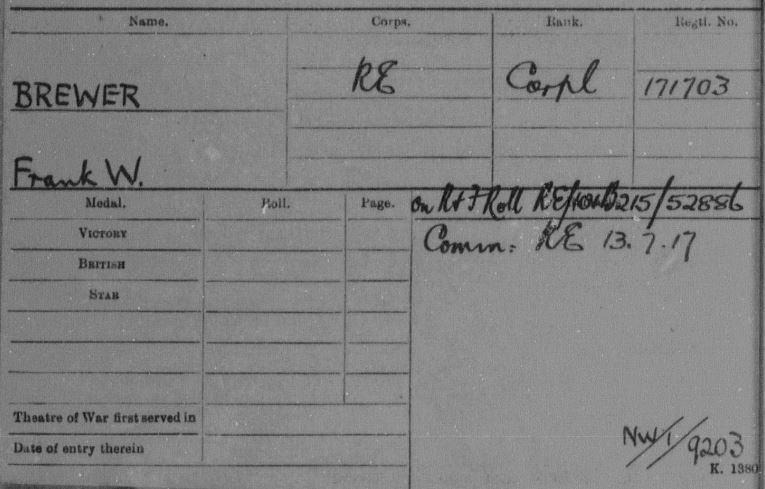 Name. Corps. Rank. Regtl. No.
BREWER RE Corpl 171703
Frank W.
Medal. Roll. Page. on R & F Roll RE/101B215/52886
VICTORY Comm: RE 13.7.17
BRITISH
STAR
Theatre of War first served in
Date of entry therein
NW/1/9203
K. 1380